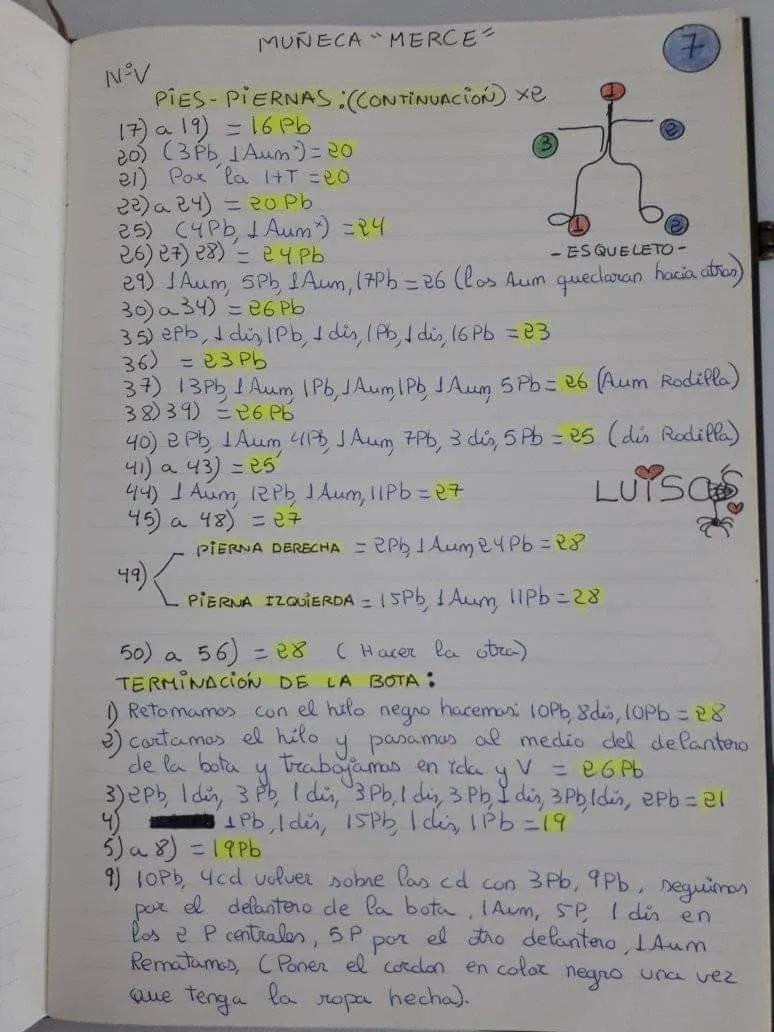 MUÑECA "MERCE"
7
NºV
PIES-PIERNAS:(CONTINUACIÓN) x2
17) a 19) = 16Pb
20) (3Pb, 1Aum*) = 20
21) Por la 1+T = 20
22) a 24) = 20Pb
25) (4Pb, 1Aum*) = 24
26) 27) 28) = 24Pb
29) 1Aum, 5Pb, 1Aum, 17Pb = 26 (los Aum quedaran hacia atras)
30) a 34) = 26Pb
35) 2Pb, 1dis, 1Pb, 1dis, 1Pb, 1dis, 16Pb = 23
36) = 23Pb
37) 13Pb, 1Aum, 1Pb, 1Aum, 1Pb, 1Aum, 5Pb = 26 (Aum Rodilla)
38) 39) = 26Pb
40) 2Pb, 1Aum, 4Pb, 1Aum, 7Pb, 3dis, 5Pb = 25 (dis Rodilla)
41) a 43) = 25
44) 1Aum, 12Pb, 1Aum, 11Pb = 27
45) a 48) = 27
49)
PIERNA DERECHA = 2Pb, 1Aum, 24Pb = 28
PIERNA IZQUIERDA = 15Pb, 1Aum, 11Pb = 28
50) a 56) = 28 (Hacer la otra)
TERMINACIÓN DE LA BOTA:
1) Retomamos con el hilo negro hacemos: 10Pb, 8dis, 10Pb = 28
2) cortamos el hilo y pasamos al medio del delantero
de la bota y trabajamos en ida y V = 26Pb
3) 2Pb, 1dis, 3Pb, 1dis, 3Pb, 1dis, 3Pb, 1dis, 3Pb, 1dis, 2Pb = 21
4) 1Pb, 1dis, 15Pb, 1dis, 1Pb = 19
5) a 8) = 19Pb
9) 10Pb, 4cd volver sobre las cd con 3Pb, 9Pb, seguimos
por el delantero de la bota, 1Aum, 5P, 1dis en
los 2 P centrales, 5P por el otro delantero, 1Aum
Rematamos, (Poner el cordon en color negro una vez
que tenga la ropa hecha).
1
2
3
1
2
-ESQUELETO-
LUISOS